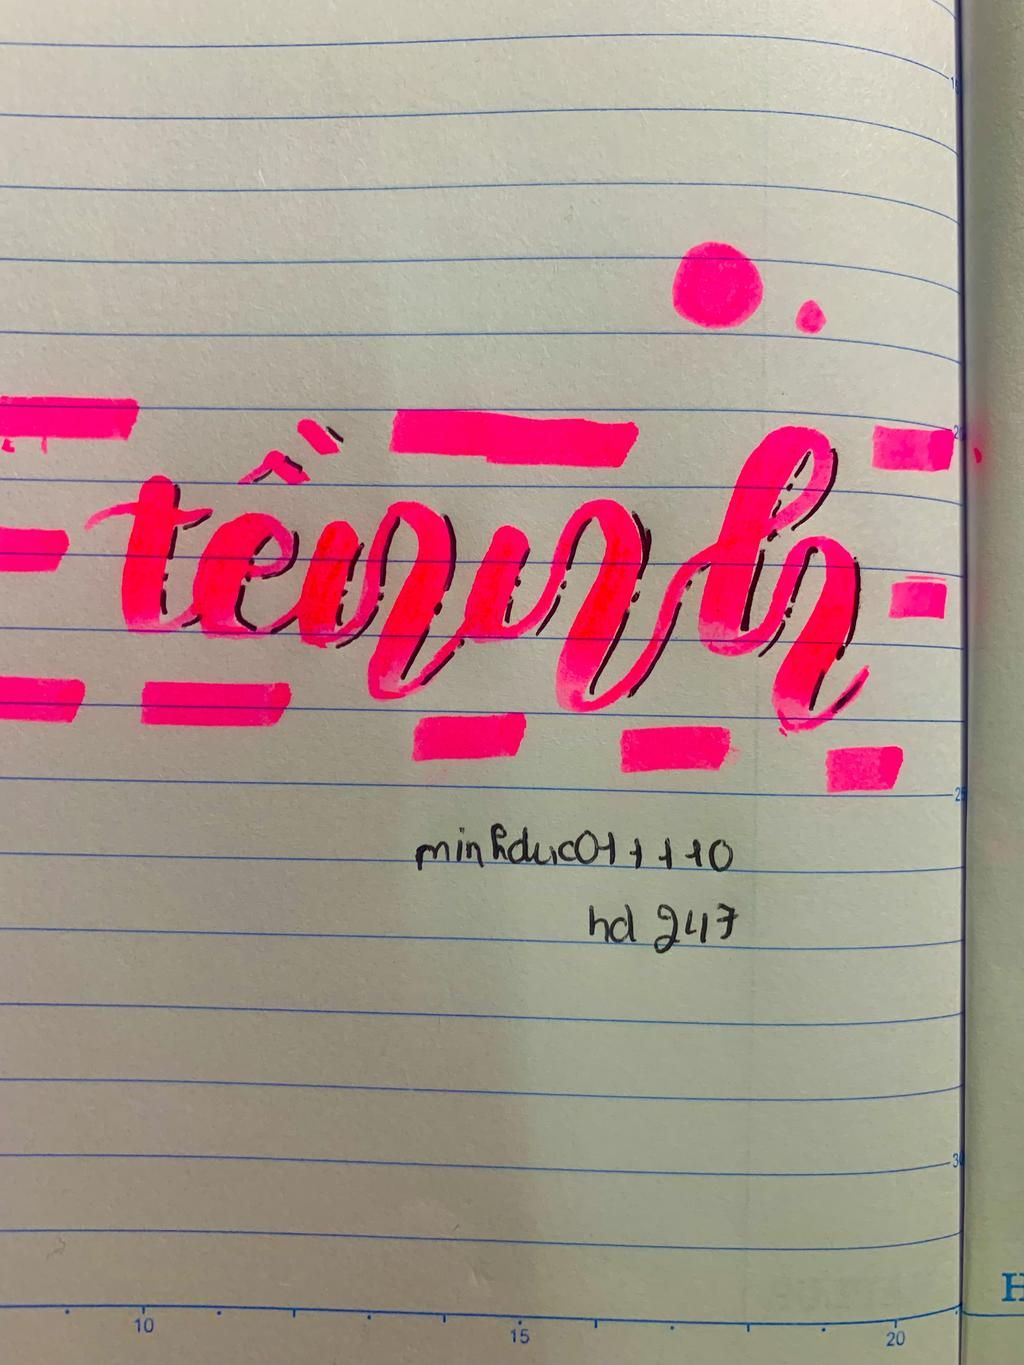 tềnnh
minhduc011110
hd 247
25
10 15 20
H